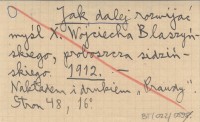 O Jak dalej rozwijać
myśl X. Wojciecha Blaszyń-
skiego, proboszcza sidziń-
skiego. 1912. —
Nakładem i drukiem „Prawdy”
Stron 48, 16°